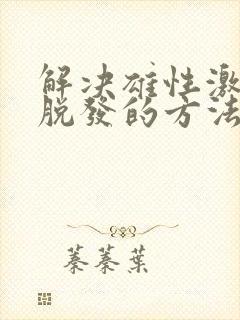 解决雄性激
脱發的方法
蓁蓁葉